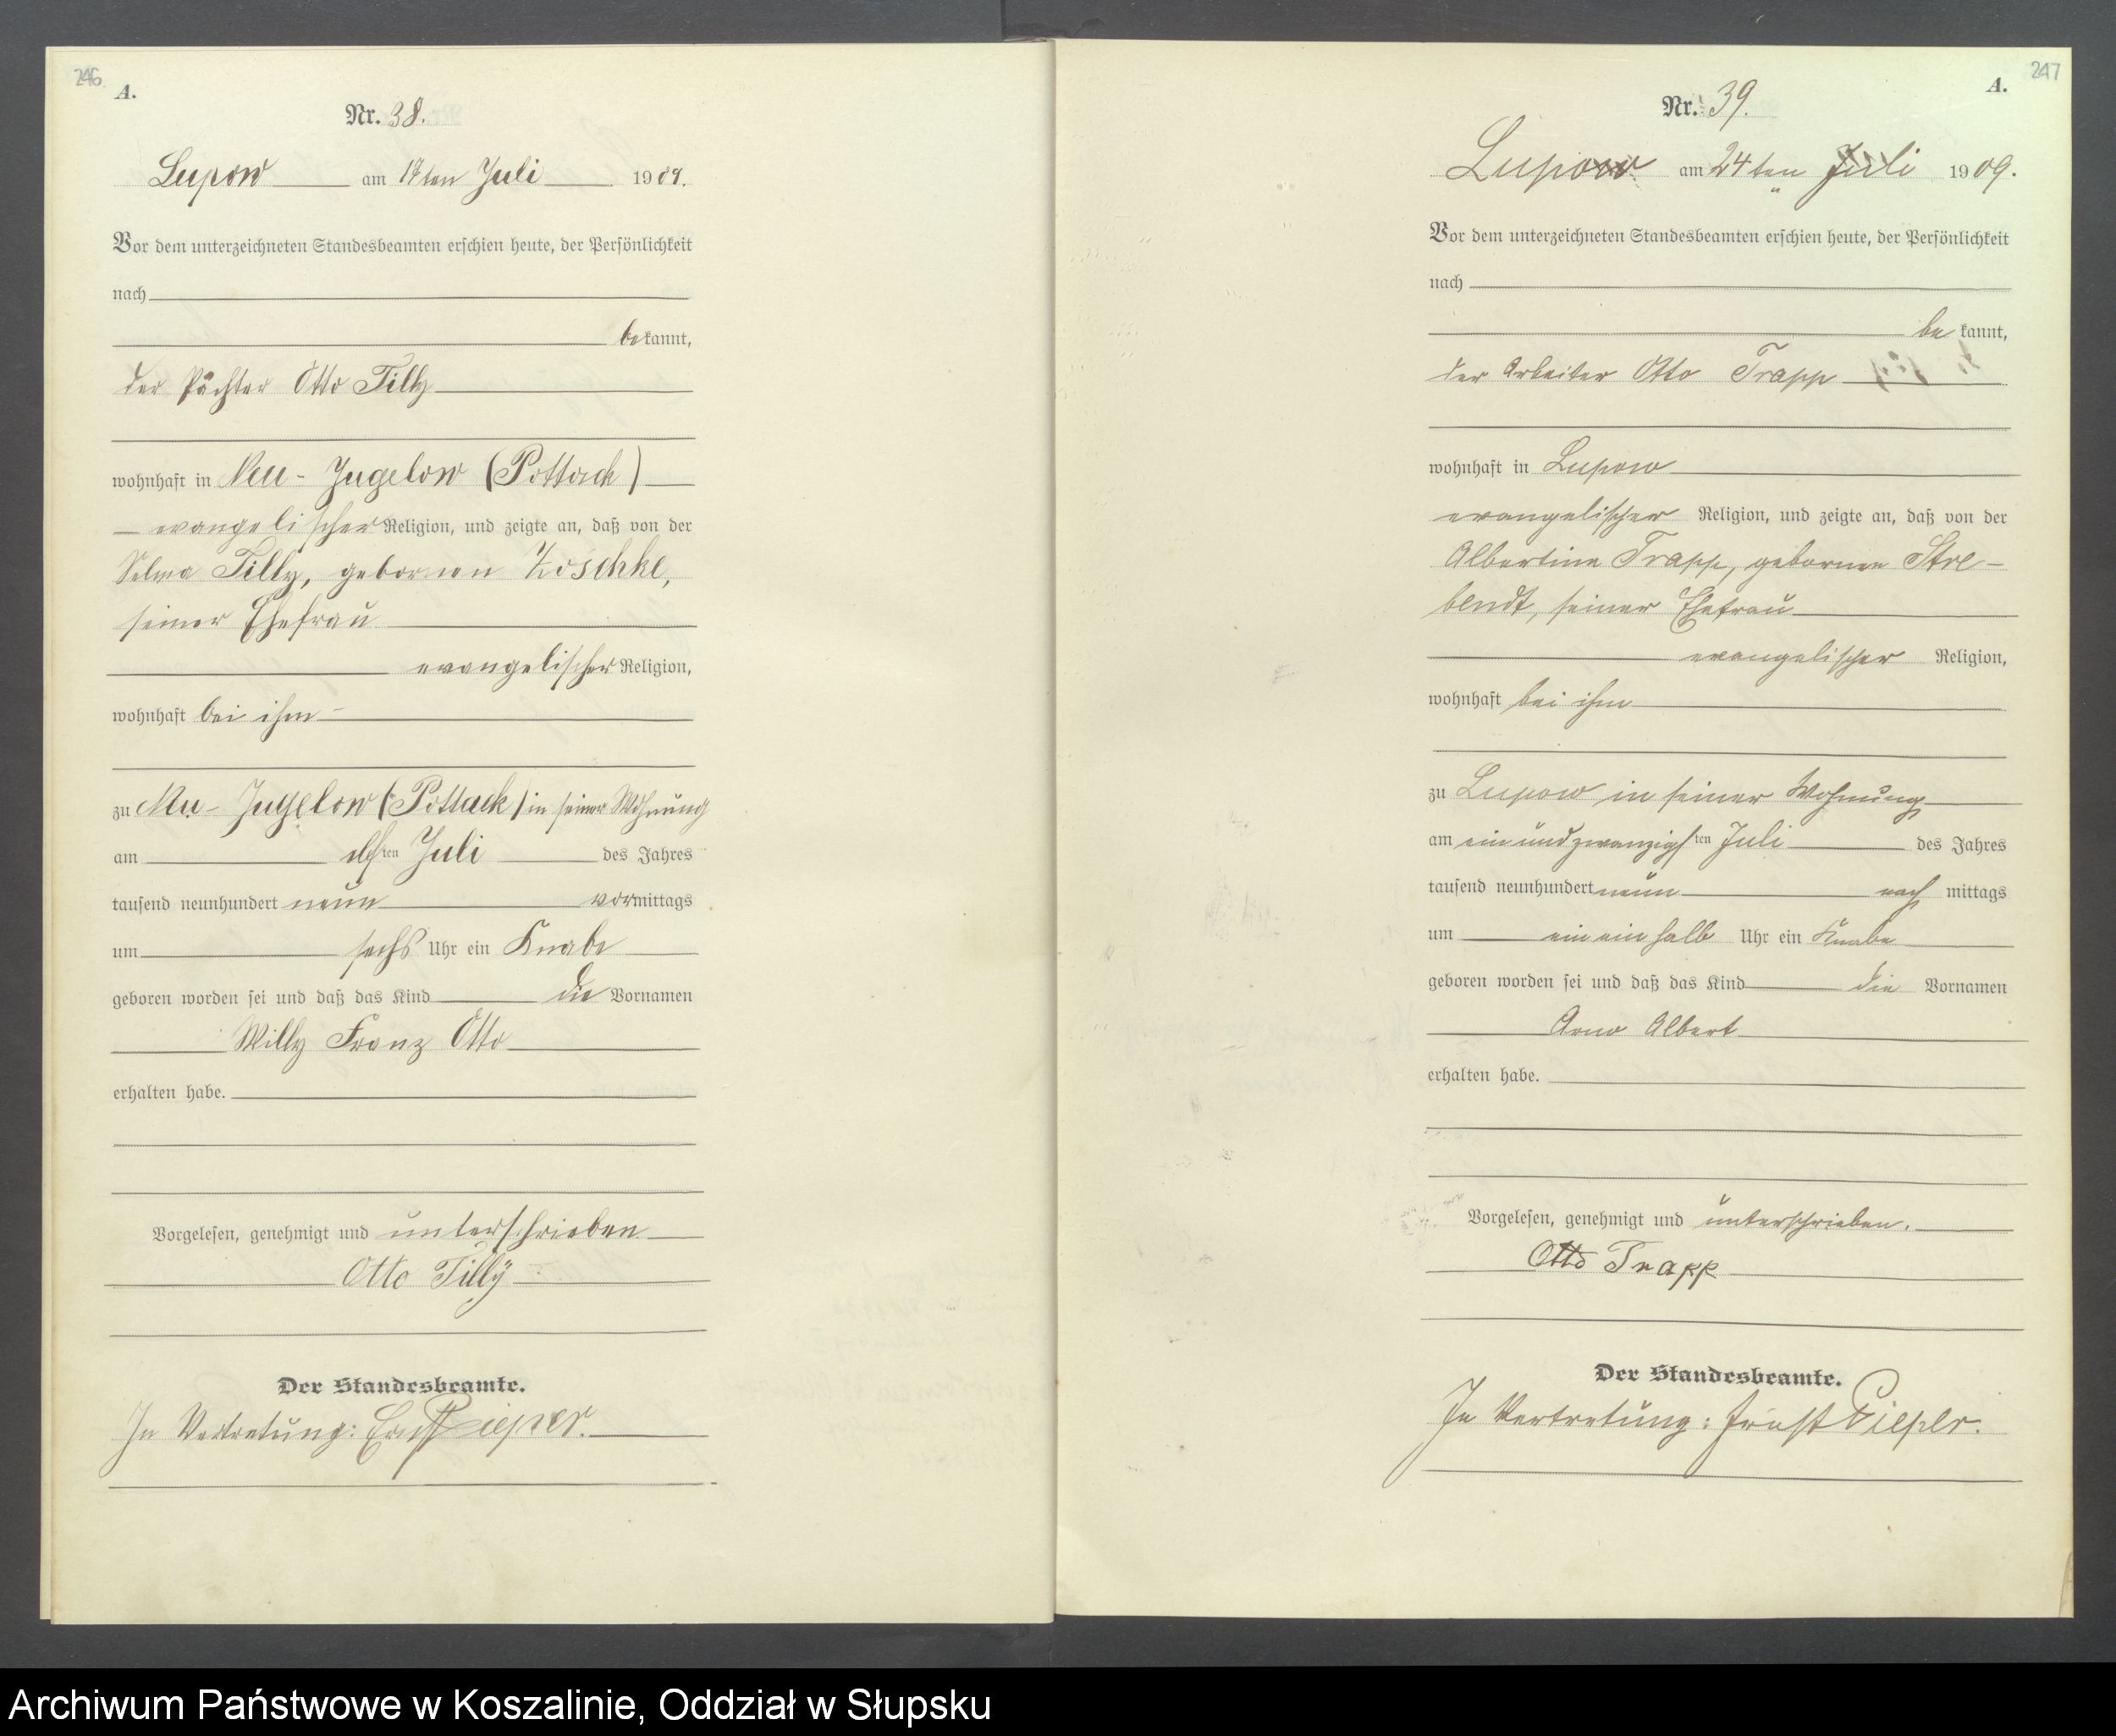 246
A.
Nr. 38.
Lupow am 17ten Juli 1909.
Vor dem unterzeichneten Standesbeamten erschien heute, der Persönlichkeit
nach
bekannt,
der Pächter Otto Tilly
wohnhaft in Neu-Jugelow (Pottack)
evangelischer Religion, und zeigte an, daß von der
Selma Tilly, gebornen Zoschke,
seiner Ehefrau
evangelischer Religion,
wohnhaft bei ihm
zu Neu-Jugelow (Pottack) in seiner Wohnung
am elften Juli des Jahres
tausend neunhundert neun vormittags
um sechs Uhr ein Knabe
geboren worden sei und daß das Kind die Vornamen
Willy Franz Otto
erhalten habe.
Vorgelesen, genehmigt und unterschrieben
Otto Tilly
Der Standesbeamte.
In Vertretung: Ernst Pieper.
247
A.
Nr. 39.
Lupow am 24ten Juli 1909.
Vor dem unterzeichneten Standesbeamten erschien heute, der Persönlichkeit
nach
bekannt,
der Arbeiter Otto Trapp
wohnhaft in Lupow
evangelischer Religion, und zeigte an, daß von der
Albertine Trapp, gebornen Stre-
bendt, seiner Ehefrau
evangelischer Religion,
wohnhaft bei ihm
zu Lupow in seiner Wohnung
am einundzwanzigsten Juli des Jahres
tausend neunhundert neun nachmittags
um ein ein halb Uhr ein Knabe
geboren worden sei und daß das Kind die Vornamen
Arno Albert
erhalten habe.
Vorgelesen, genehmigt und unterschrieben.
Otto Trapp
Der Standesbeamte.
In Vertretung: Ernst Pieper.
Archiwum Państwowe w Koszalinie, Oddział w Słupsku